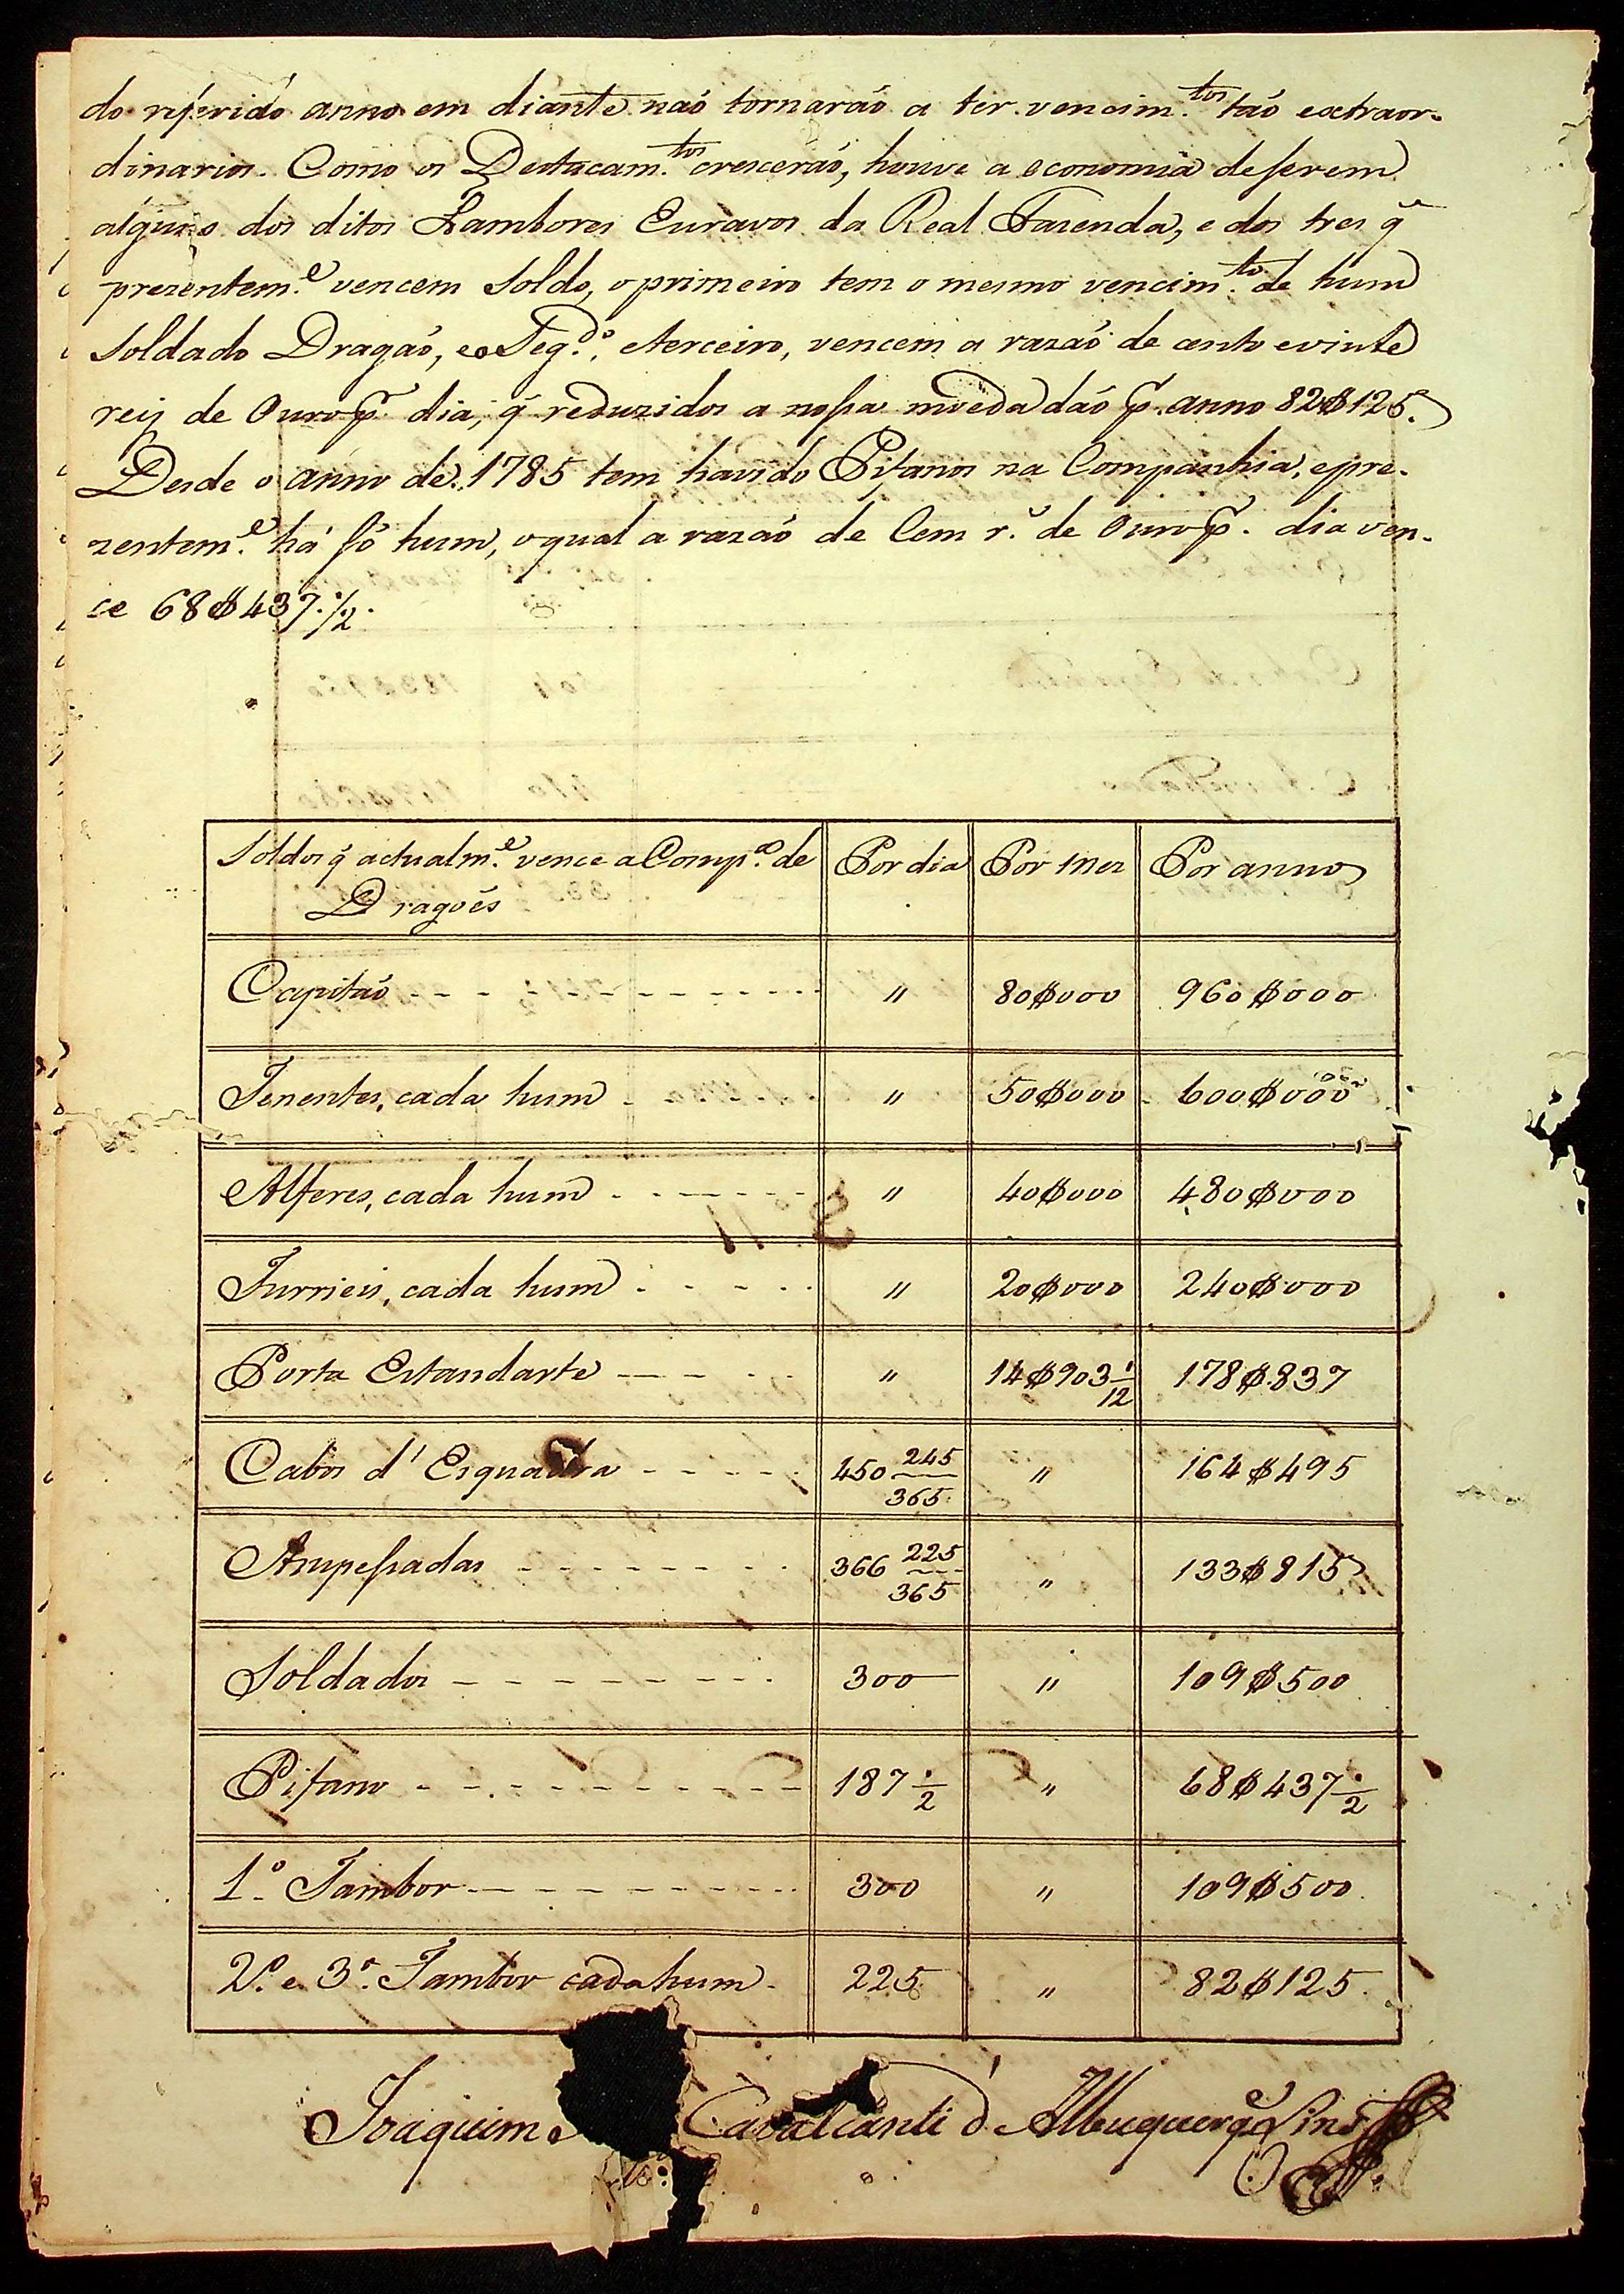 do referido anno em diante naõ tornaraõ a ter vencim.tos taõ extraor-
dinarios. Como os Destacam.tos cresceraõ, houve a economia deserem
alguns dos ditos Tambores Escravos da Real Fazenda, e dos tres q̃
prezentem.e vencem Soldo, oprimeiro tem o mesmo vencim.to de hum
Soldado Dragaõ, eo Seg.do, eterceiro, vencem a razaõ de cento evinte
reis de Ouro p. dia, q̃ reduzidos a nossa moeda daõ p. anno 82$125.
Desde o anno de 1785 tem havido Pifanos na Companhia, epre-
zentem.e há só hum, oqual a razaõ de Cem r.s de Ouro p. dia ven-
ce 68$437 1/2.
Soldos q̃ actualm.e vence a Comp.a de Dragoẽs Por dia Por mez Por anno
Capitaõ " 80$000 960$000
Tenentes, cada hum " 50$000 600$000
Alferes, cada hum " 40$000 480$000
Furrieis, cada hum " 20$000 240$000
Porta Estandarte " 14$903 1/12 178$837
Cabos d'Esquadra 450 245/365 " 164$495
Anspessadas 366 225/365 " 133$815
Soldados 300 " 109$500
Pifano 187 1/2 " 68$437 1/2
1.o Tambor 300 " 109$500
2.o e 3.o Tambor cada hum 225 " 82$125
Joaquim Cavalcanti d'Albuquerq̃e Lins